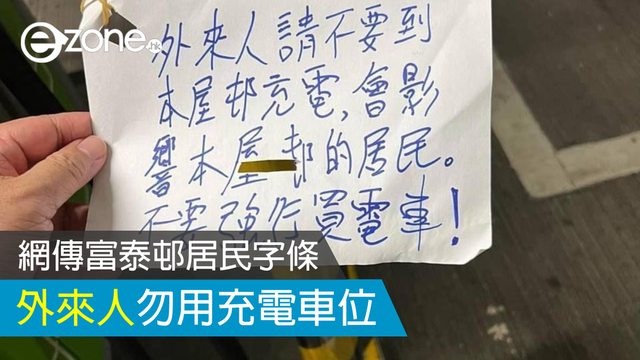 e-zone.hk
外來人請不要到
本屋邨充電，會影
響本屋邨的居民。
不要強行買電車！
網傳富泰邨居民字條
外來人勿用充電車位